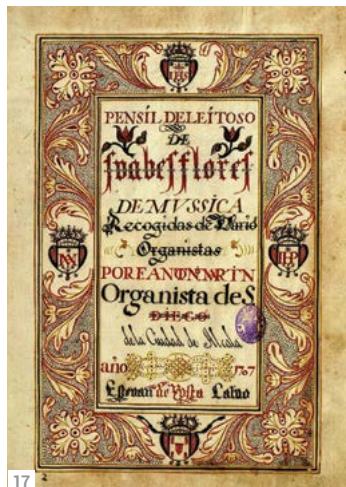 PENSÍL DELEÍTOSO
DE
suabes flores
DE MVSSICA
Recogidas de Vario
Organistas
POR F ANTON MARTIN
Organista de S.
DIEGO
de la Ciudad de Alcala
año 1707
Estevan de Costa Calvo
17
2